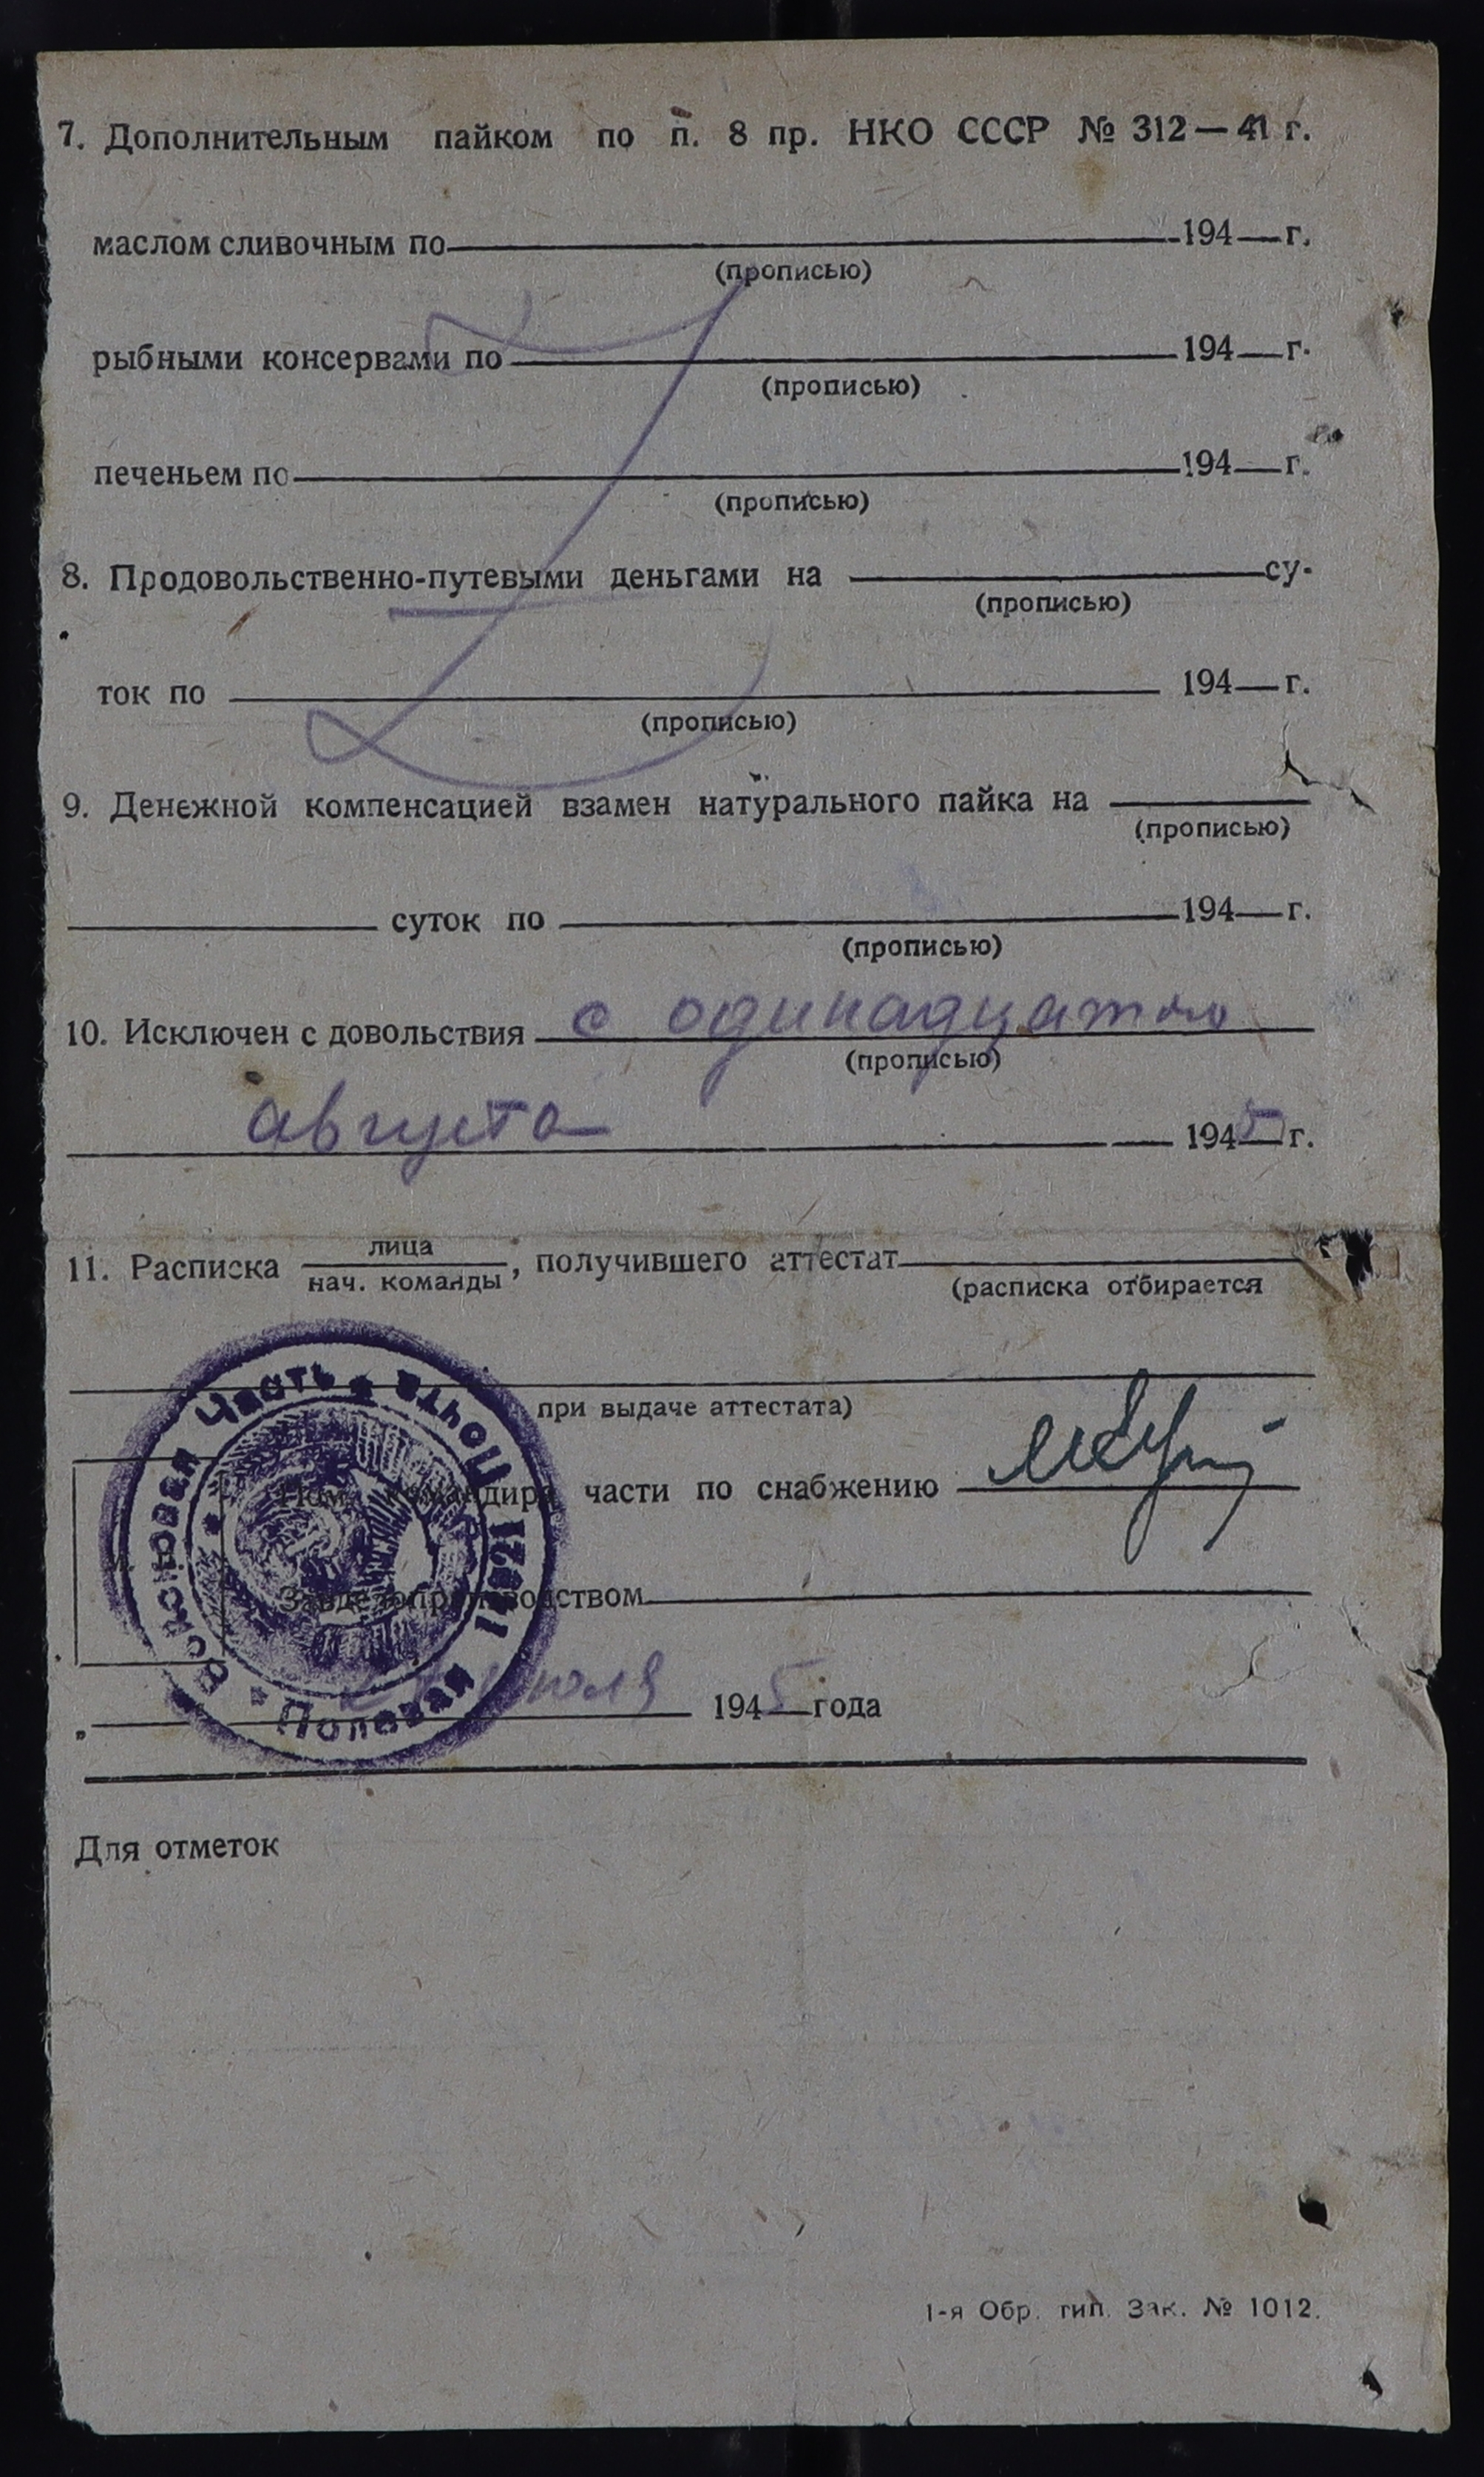 7. Дополнительным пайком по п. 8 пр. НКО СССР № 312—41 г.
маслом сливочным по 194—г.
(прописью)
рыбными консервами по 194—г.
(прописью)
печеньем по 194—г.
(прописью)
8. Продовольственно-путевыми деньгами на су-
(прописью)
ток по 194—г.
(прописью)
9. Денежной компенсацией взамен натурального пайка на
(прописью)
суток по 194—г.
(прописью)
10. Исключен с довольствия с одинадцатого
(прописью)
августа 1945 г.
11. Расписка лица
нач. команды, получившего аттестат
(расписка отбирается
при выдаче аттестата)
Пом. командира части по снабжению
Завделопроизводством
июля 1945 года
Войсковая Часть * Полевая Почта
Для отметок
1-я Обр. тип. Зак. № 1012.